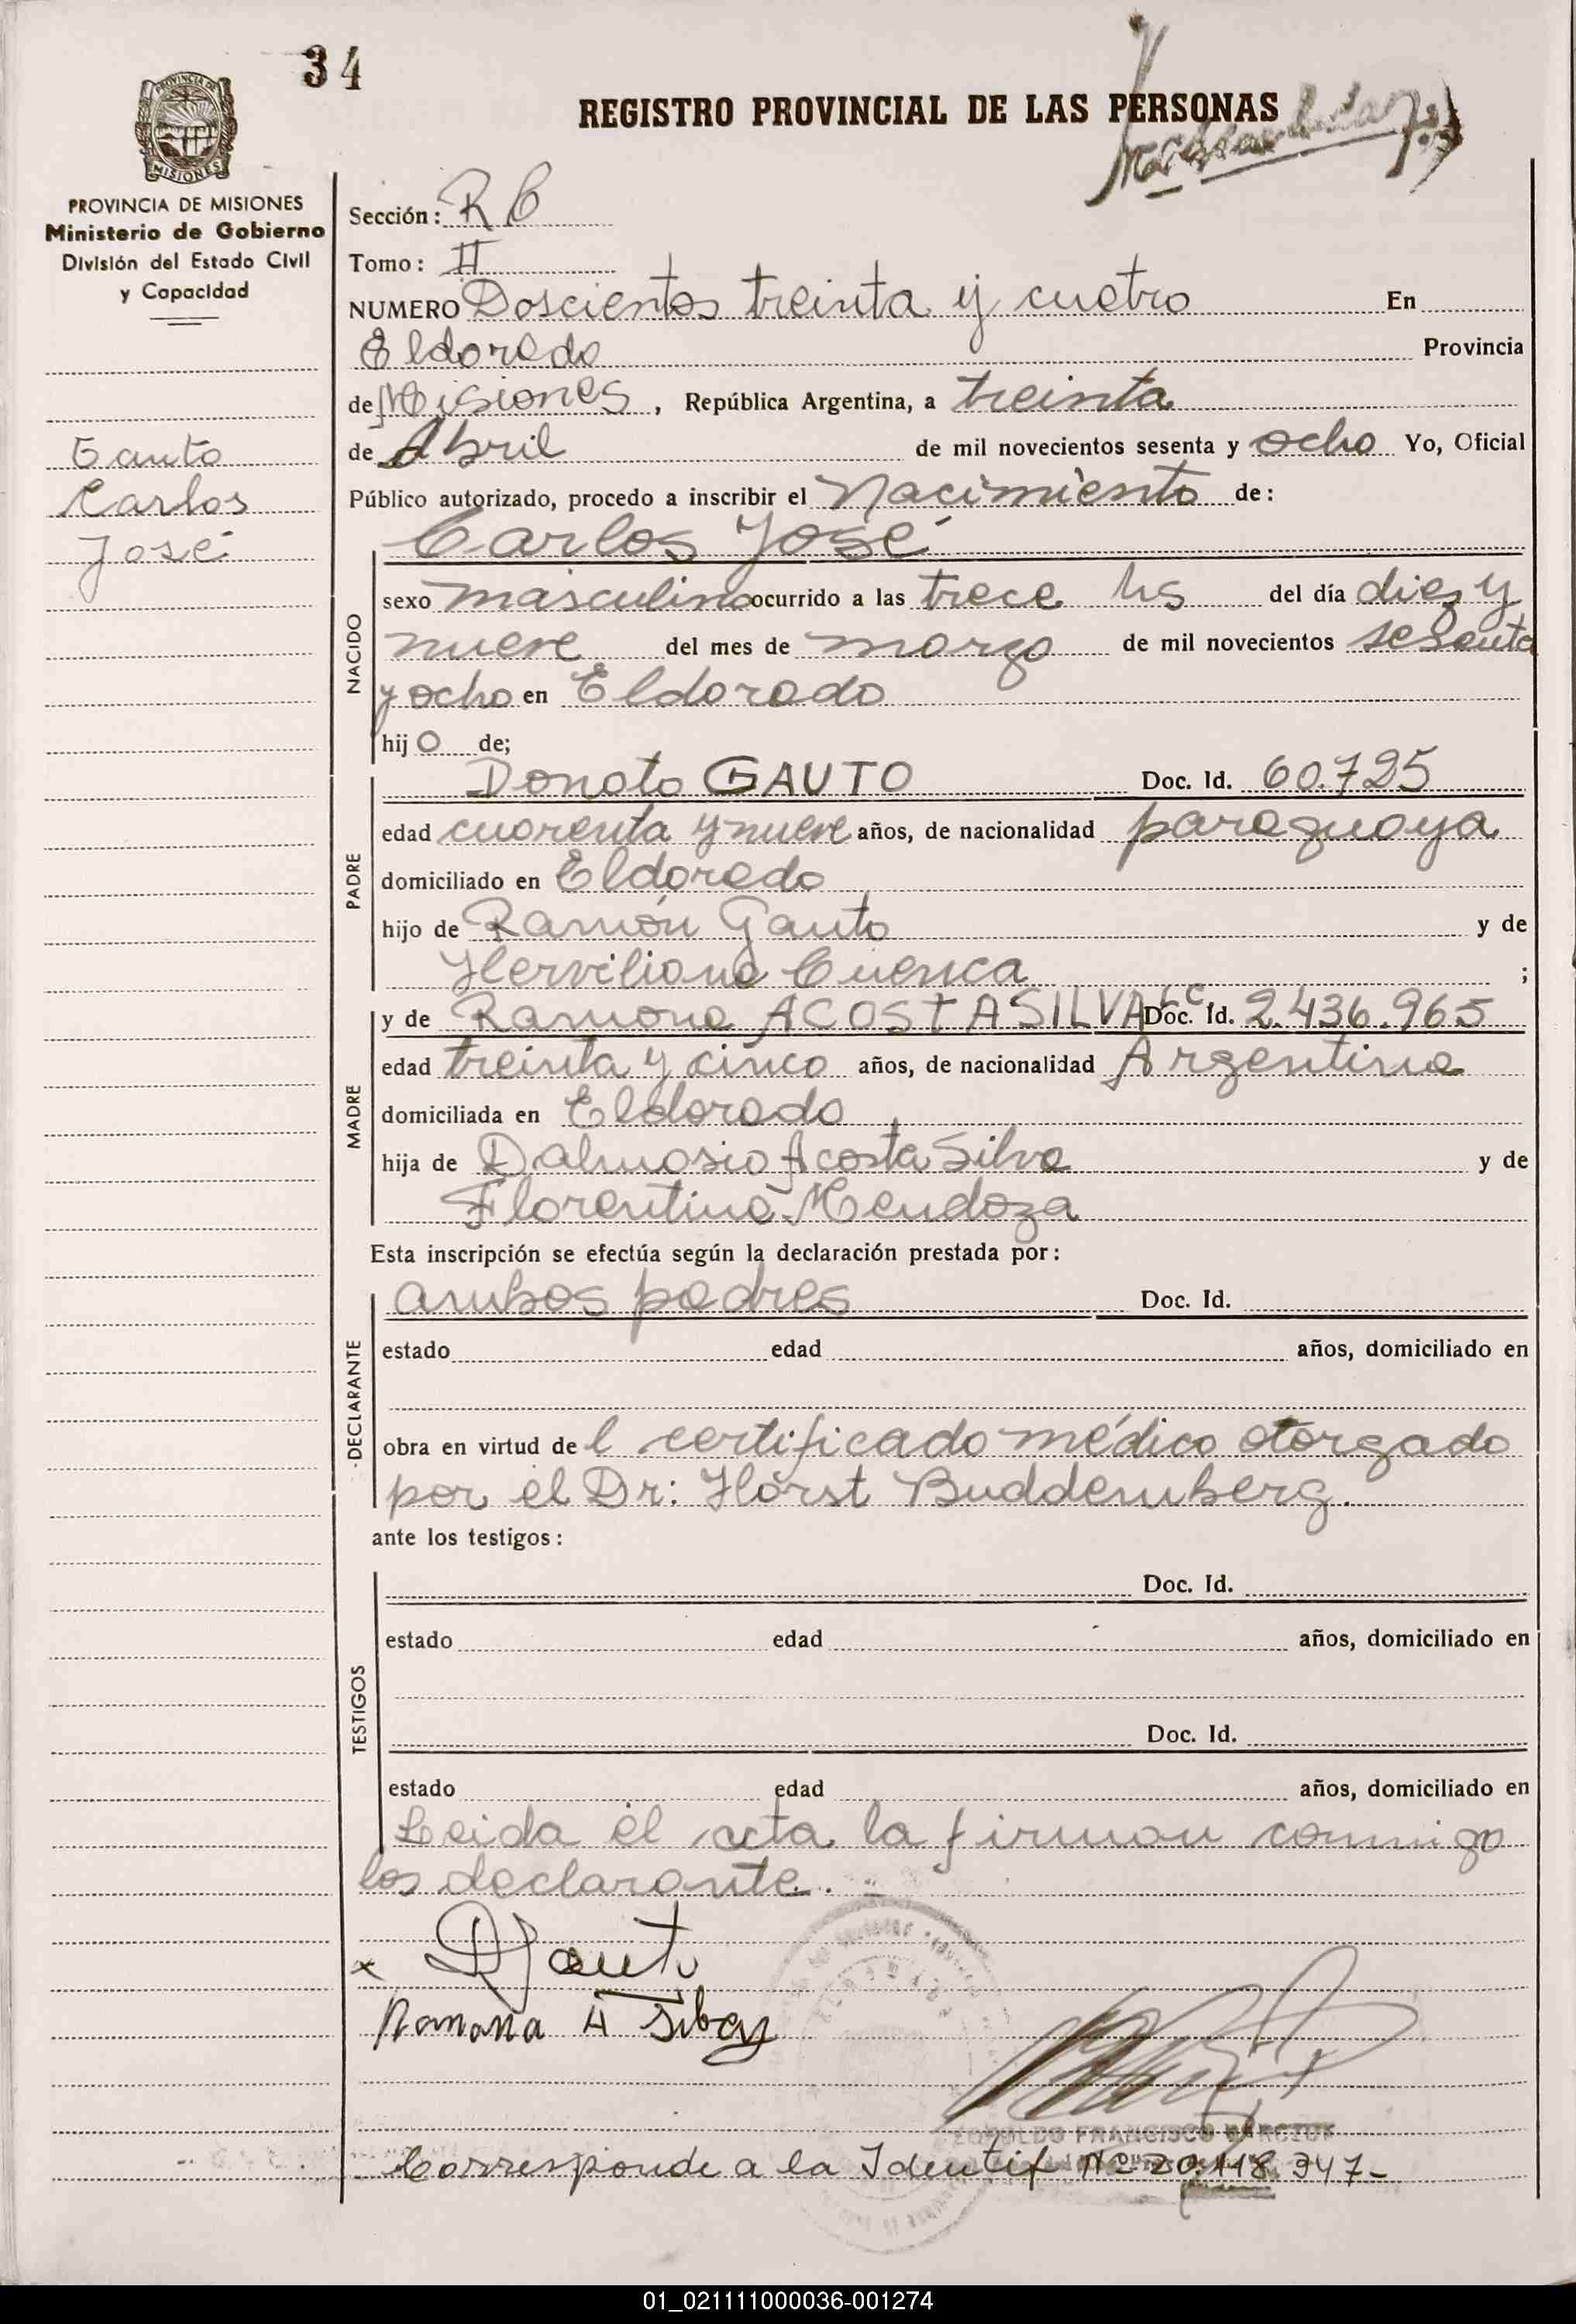 34
REGISTRO PROVINCIAL DE LAS PERSONAS
PROVINCIA DE MISIONES
MISIONES
PROVINCIA DE MISIONES
Ministerio de Gobierno
División del Estado Civil
y Capacidad
Gauto
Carlos
José
Sección: R C
Tomo: II
NUMERO Doscientos treinta y cuatro En
Eldorado Provincia
de Misiones, República Argentina, a treinta
de Abril de mil novecientos sesenta y ocho Yo, Oficial
Público autorizado, procedo a inscribir el Nacimiento de:
Carlos José
NACIDO
sexo masculino ocurrido a las trece hs del día diez y
nueve del mes de marzo de mil novecientos sesenta
y ocho en Eldorado
hijo de;
PADRE
Donato GAUTO Doc. Id. 60.725
edad cuarenta y nueve años, de nacionalidad paraguaya
domiciliado en Eldorado
hijo de Ramón Gauto y de
Herviliana Cuenca ;
MADRE
y de Ramona ACOSTA SILVA Doc. Id. L C 2.436.965
edad treinta y cinco años, de nacionalidad Argentina
domiciliada en Eldorado
hija de Dalmasio Acosta Silva y de
Florentina Mendoza
Esta inscripción se efectúa según la declaración prestada por:
DECLARANTE
ambos padres Doc. Id.
estado edad años, domiciliado en
obra en virtud del certificado médico otorgado
por el Dr: Horst Buddemberg.
ante los testigos:
TESTIGOS
Doc. Id.
estado edad años, domiciliado en
Doc. Id.
estado edad años, domiciliado en
Leida el acta la firman conmigo
los declarante.
x D Gauto
Ramona A Silva
FRANCISCO
Corresponde a la Identif Nº 20.118.947-
01_021111000036-001274